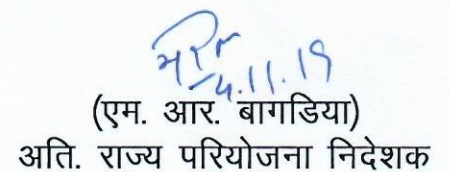 4.11.19
(एम. आर. बागडिया)
अति. राज्य परियोजना निदेशक